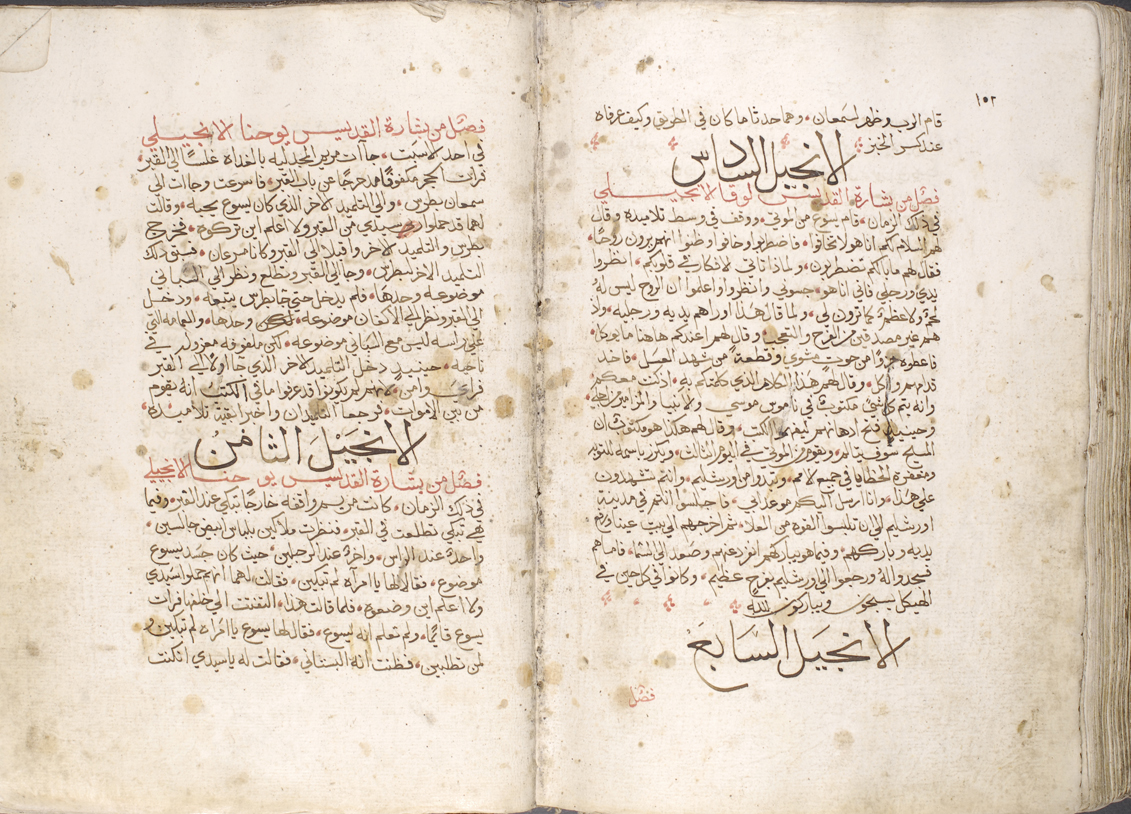 ١٥٢
قام الرب وظهر لسمعان وهما حدثاهما كان في الطريق وكيف عرفاه
عند كسر الخبز
الانجيل السادس
فصل من بشارة القديس لوقا الانجيلي
في ذلك الزمان قام يسوع من الموتي ووقف في وسط تلاميذه وقال
لهم السلام لكم انا هو لا تخافوا فاضطربوا وخافوا وظنوا انهم يرون روحا
فقال لهم ما بالكم تضطربون ولماذا تاتي الافكار في قلوبكم انظروا
يدي ورجلي فاني انا هو جسوني وانظروا واعلموا ان الروح ليس له
لحم ولا عظم كما ترون لي ولما قال هذا اوراهم يديه ورجليه واذ
هم غير مصدقين من الفرح والتعجب وقال لهم اعندكم هاهنا ما يوكل
فاعطوه جزءا من حوت مشوي وقطعة من شهد العسل فاخذ
قدامهم واكل وقال لهم هذا الكلام الذي كلمتكم به اذ كنت معكم
وانه يتم كل شي مكتوب في ناموس موسي والانبيا والمزامير لاجلي
وحينيذ فتح اذهانهم ليفهموا الكتب وقال لهم هكذا هو مكتوب ان
المسيح سوف يتالم ويقوم من الموتي في اليوم الثالث ويكرز باسمه للتوبة
ومغفرة الخطايا في جميع الامم ويبدوا من اورشليم وانتم تشهدون
علي هذا وانا ارسل اليكم موعد ابي فاجلسوا انتم في مدينة
اورشليم الي ان تلبسوا القوة من العلاء ثم اخرجهم الي بيت عنيا ورفع
يديه وباركهم وفيما هو يباركهم انفرد عنهم وصعد الي السما فاما هم
فسجدوا له ورجعوا الي اورشليم بفرح عظيم وكانوا في كل حين في
الهيكل يسبحون ويباركون لله
الانجيل السابع
فصل
فصل من بشارة القديس يوحنا الانجيلي
في احد السبت جات مريم المجدلية بالغداة غلسا الي القبر
فرات الحجر مكفوفا مدحرجا عن باب القبر فاسرعت وجات الي
سمعان بطرس والي التلميذ الاخر الذي كان يسوع يحبه وقالت
لهما قد حملوا سيدي من القبر ولا اعلم اين تركوه فخرج
بطرس والتلميذ الاخر واقبلا الي القبر وكانا مسرعان فسبق ذلك
التلميذ الاخر لبطرس وجا الي القبر وتطلع ونظر الي السباني
موضوعة وحدها فلم يدخل حتي جا بطرس يتبعه ودخل
الي القبر ونظر الي الاكفان موضوعة وحدها والعمامة التي
علي راسه ليس مع السباني موضوعة لكن ملفوفة معزولة في
ناحية حينيذ دخل التلميذ الاخر الذي جا اولا الي القبر
فراي وامن لانهم لم يكونوا قد عرفوا ما في الكتب انه يقوم
من بين الاموات فرجعا التلميذان واخبرا بقية تلاميذه
الانجيل الثامن
فصل من بشارة القديس يوحنا الانجيلي
في ذلك الزمان كانت مريم واقفة خارجا تبكي عند القبر وفيما
هي تبكي تطلعت في القبر فنظرت ملاكين بلباس ابيض جالسين
واحدا عند الراس واخر عند الرجلين حيث كان جسد يسوع
موضوع فقالا لها يا امرأة لم تبكين فقالت لهما انهم حملوا سيدي
ولا اعلم اين وضعوه فلما قالت هذا التفتت الي خلفها فرات
يسوع قايما ولم تعلم انه يسوع فقال لها يسوع يا امرأة لم تبكين و
لمن تطلبين فظنت انه البستاني فقالت له يا سيدي ان كنت